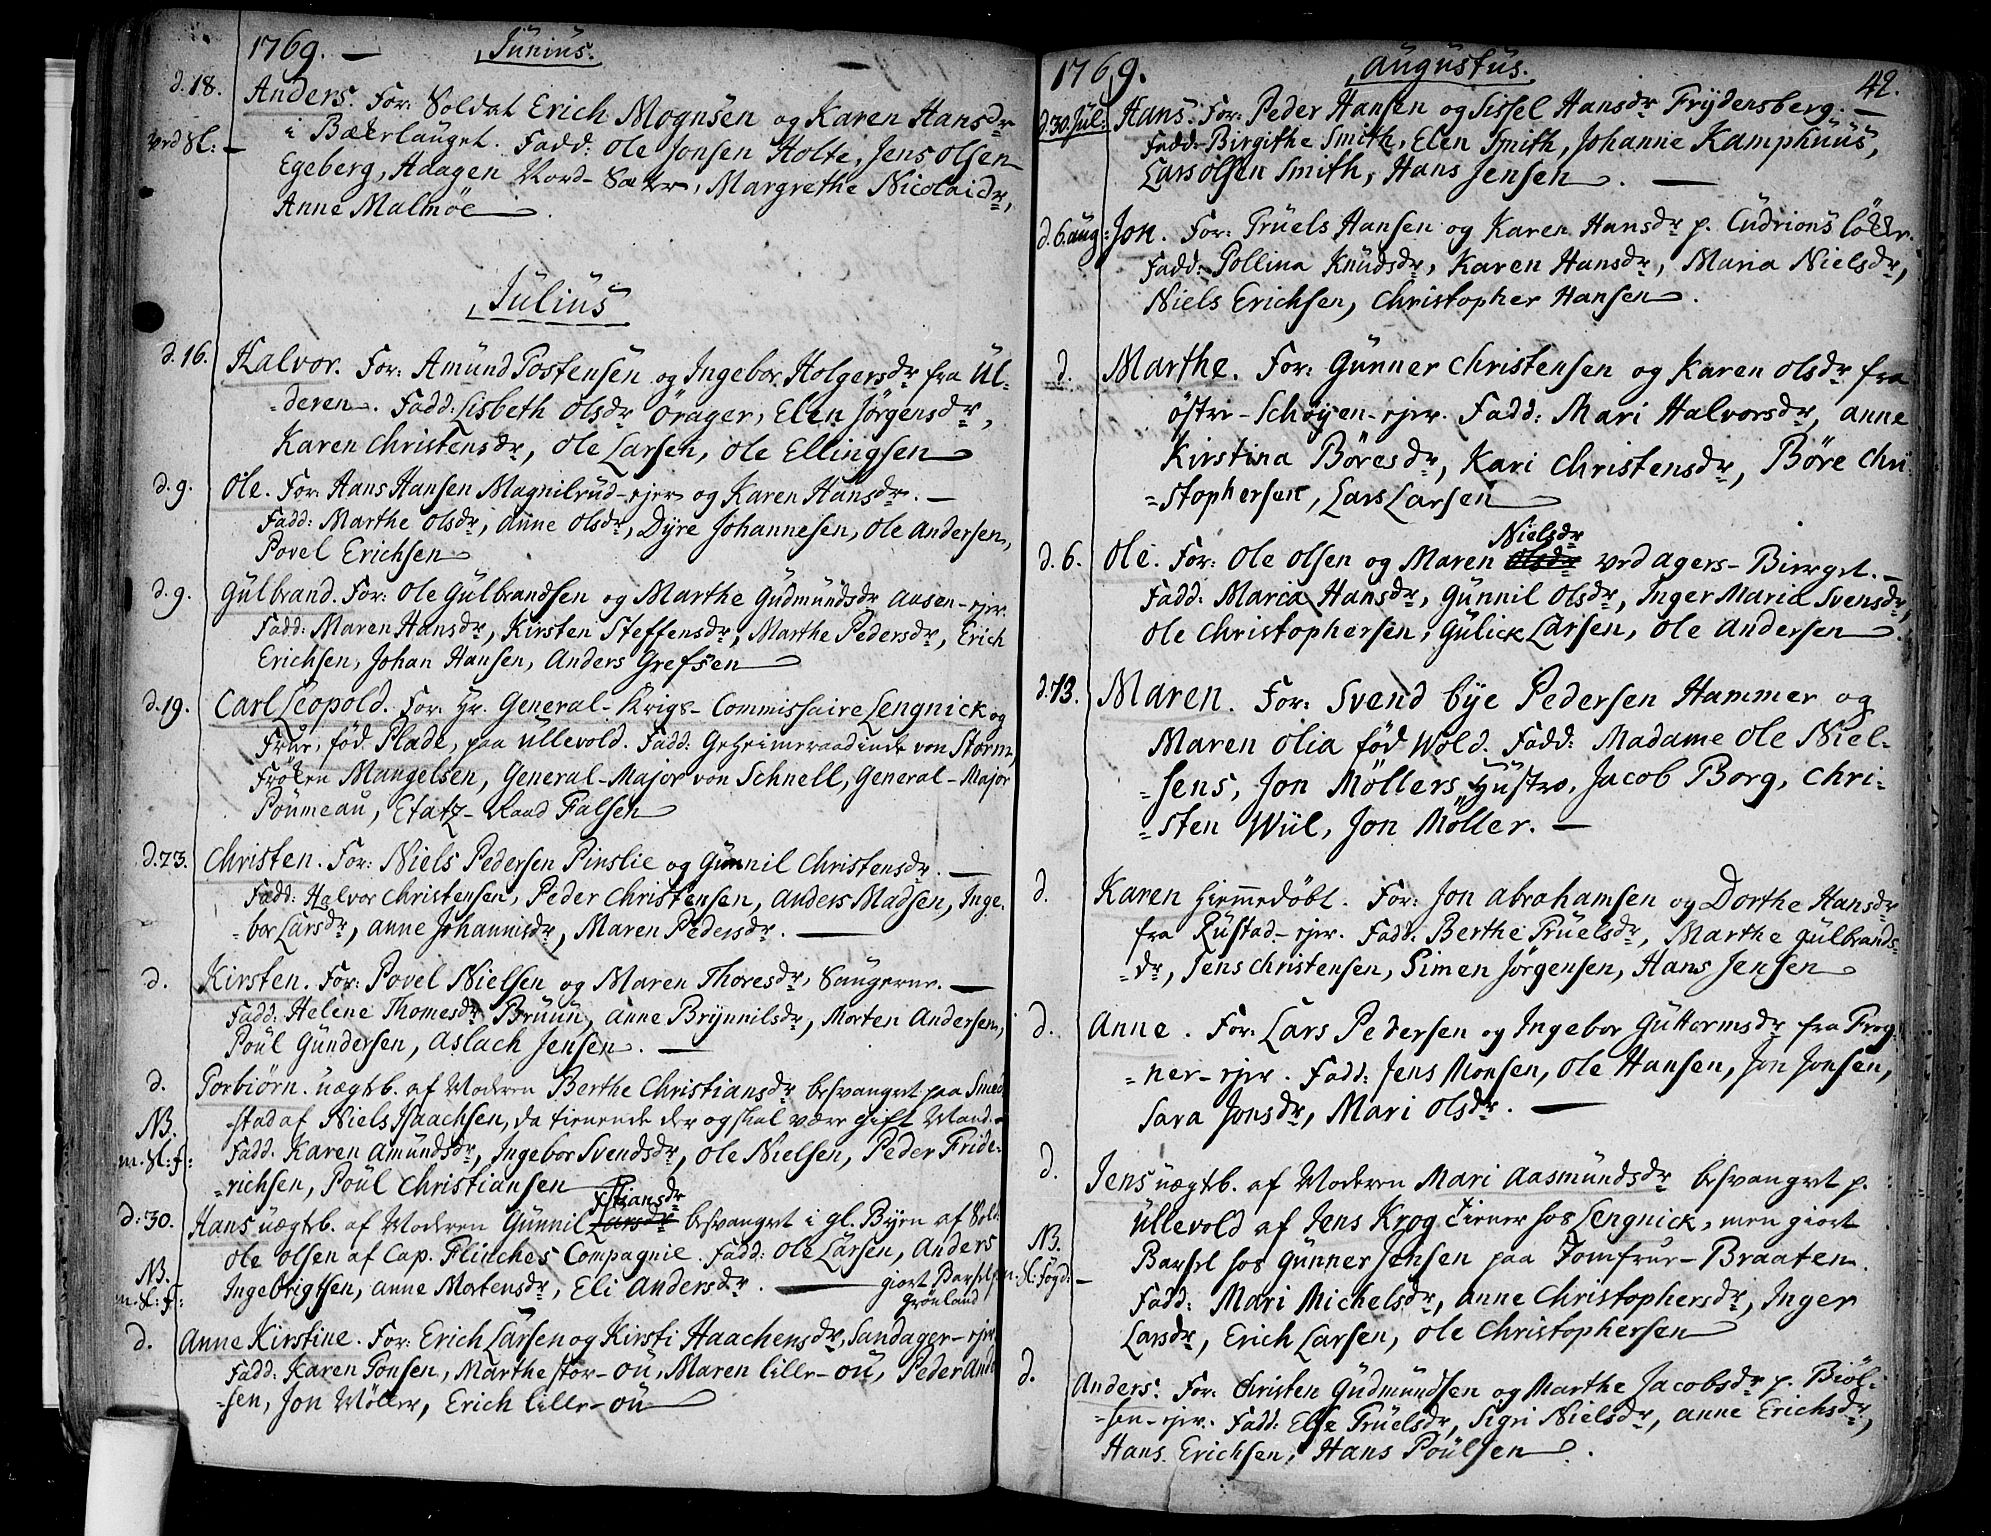 1769. — Junius.
d. 18. Anders. For: Soldat Erich Mognsen og Karen Hansdr
ved Sl: — i Bækerlauget. Fadd: Ole Jonsen Holte, Jens Olsen
Egeberg, Haagen Nord-Sæter, Margrethe Nicolaidr,
Anne Malmöe.
Julius
d. 16. Halvor. For: Amund Tostensen og Ingebor Holgersdr fra Ul-
=deren. Fadd: Lisbeth Olsdr Örager, Elen Jörgensdr,
Karen Christensdr, Ole Larsen, Ole Ellingsen
d. 9. Ole. For: Hans Hansen Magnilrud-ejer og Karen Hansdr. —
Fadd: Marthe Olsdr, Anne Olsdr, Dyre Johannesen, Ole Andersen,
Povel Erichsen
d. 9. Gulbrand. For: Ole Gulbrandsen og Marthe Gudmundsdr Aasen-ejer.
Fadd: Maren Hansdr, Kirsten Steffensdr, Marthe Pedersdr, Erich
Erichsen, Johan Hansen, Anders Grefsen
d. 19. Carl Leopold. For: Hr. General-Krigs-Commissaire Lengnick og
Frue, fød Plade, paa Ullevold. Fadd: Geheimeraadinde von Storm,
Frøken Mangelsen, General-Major von Schnell, General-Major
Poumeau, Etatz-Raad Falsen
d. 23. Christen. For: Niels Pedersen Pinslie og Gunnil Christensdr. —
Fadd: Halvor Christensen, Peder Christensen, Anders Madsen, Inge-
=bor Larsdr, Anne Johannisdr, Maren Pedersdr. —
d. Kirsten. For: Povel Nielsen og Maren Thoresdr, Saugerne. —
Fadd: Helene Thomesdr Bruun, Anne Brynnilsdr, Morten Andersen,
Poul Gundersen, Aslach Jensen. —
d. Torbiørn. uægtb. af Moderen Berthe Christiansdr besvangert paa Smed-
NB. =stad af Niels Isaachsen, da tienende der og skal være gift Mand. —
m. Sl: f: Fadd. Karen Amundsdr, Ingebor Svendsdr, Ole Nielsen, Peder Fride-
=richsen, Poul Christiansen
Xstiansdr
d: 30. Hans uægtb. af Moderen Gunnil Larsdr besvangert i gl. Byen af Sold:
Ole Olsen af Cap. Flinches Compagnie. Fadd: Ole Larsen, Anders
NB. Ingebrigtsen, Anne Mortensdr, Eli Andersdr. — giort Barsel p.
m. Sl: f: Grönland
d. Anne Kirstine. For: Erich Larsen og Kirsti Haachensdr, Sandager-ejer
Fadd: Karen Tonsen, Marthe stor-ou, Maren lille-ou, Peder Ander
=sen, Jon Möller, Erich lille-ou
1769. Augustus. 42.
d. 30 Jul: Hans. For: Peder Hansen og Sissel Hansdr Frydensberg. —
Fadd: Birgithe Smith, Elen Smith, Johanne Kamphuus,
Lars Olsen Smith, Hans Jensen. —
d. 6. Aug: Jon. For: Truels Hansen og Karen Hansdr p. Cudrions lökke.
Fadd: Pollina Knudsdr, Karen Hansdr, Maria Nielsdr,
Niels Erichsen, Christopher Hansen.
d. Marthe. For: Gunner Christensen og Karen Olsdr fra
östre-Schöyen-ejer. Fadd: Mari Halvorsdr, Anne
Kirstina Böresdr, Kari Christensdr, Böre Chri-
=stophersen, Lars Larsen
Nielsdr
d. 6. Ole. For: Ole Olsen og Maren Olsdr ved Agers-Bierget. —
Fadd: Maria Hansdr, Gunnil Olsdr, Inger Maria Svensdr,
Ole Christophersen, Gulick Larsen, Ole Andersen.
d. 13. Maren. For: Svend bye Pedersen Hammer og
Maren Olia fød Wold. Fadd: Madame Ole Niel-
=sens, Jon Möllers Hustro, Jacob Borg, Chri-
=sten Wiil, Jon Möller. —
d. Karen hiemmedöbt. For: Jon Abrahamsen og Dorthe Hansdr
fra Rustad-ejer. Fadd: Berthe Truelsdr, Marthe Gulbrands-
=dr, Jens Christensen, Simen Jörgensen, Hans Jensen
d. Anne. For: Lars Pedersen og Ingebor Guttormsdr fra Frog-
=ner-ejer. Fadd: Jens Monsen, Ole Hansen, Jon Jonsen,
Sara Jonsdr, Mari Olsdr. —
d. Jens uægtb. af Moderen Mari Aasmundsdr besvangret p.
Ullevold af Jens Krog tiener hos Lengnick, men giort
NB. Barsel hos Gunner Jensen paa Jomfrue-Braaten.
m. Sl: Fogd: — Fadd: Mari Michelsdr, Anne Christophersdr, Inger
Larsdr, Erich Larsen, Ole Christophersen
d. Anders. For: Christen Gudmundsen og Marthe Jacobsdr p. Biöl-
=sen-ejer. Fadd: Else Truelsdr, Sigri Nielsdr, Anne Erichsdr,
Hans Erichsen, Hans Poulsen.